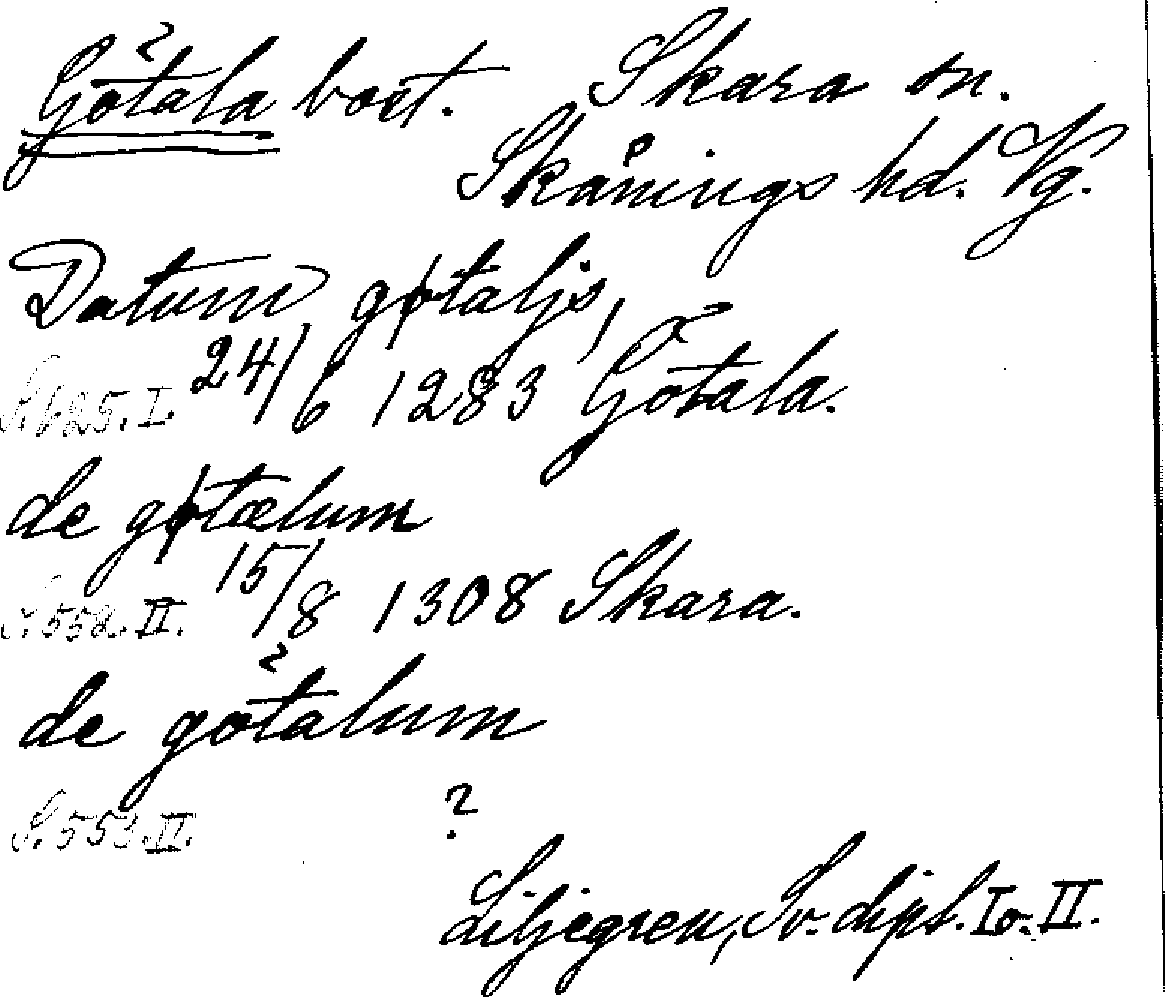 Götala bost. Skara sn.
Skånings hd. Vg.
Datum gøtaljs,
S. 625. I. 24/6 1283 Götala.
de gøtælum
S. 552. II. 15/8 1308 Skara.
de götalum
S. 553. II. ?
Liljegren, Sv. dipl. I o. II.